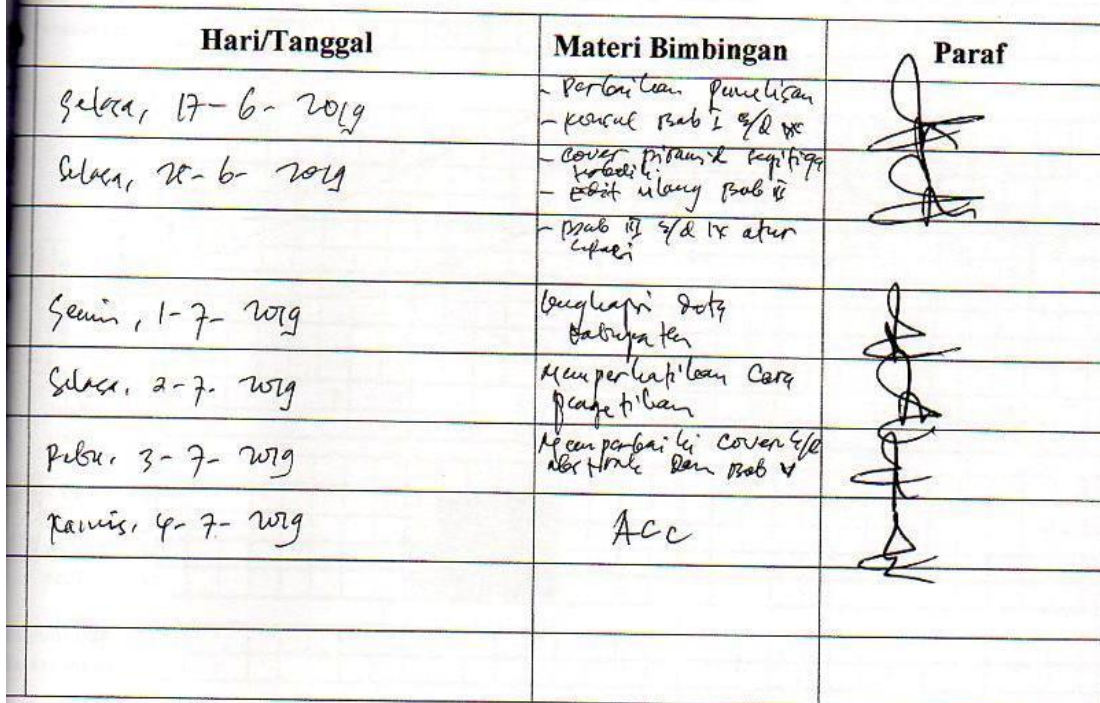 Hari/Tanggal Materi Bimbingan Paraf
Selasa, 17-6-2019
- Perbaikan penulisan
- Bab I s/d
Selasa, 25-6-2019
- cover piramid segitiga terbalik
- Edit ulang Bab II
- Bab III s/d IV atur
Senin, 1-7-2019
lengkapi data
kabupaten
Selasa, 2-7-2019
Memperhatikan Cara
pengetikan
Rabu, 3-7-2019
Memperbaiki cover s/d
abstrak Dan Bab V
Kamis, 4-7-2019
Acc